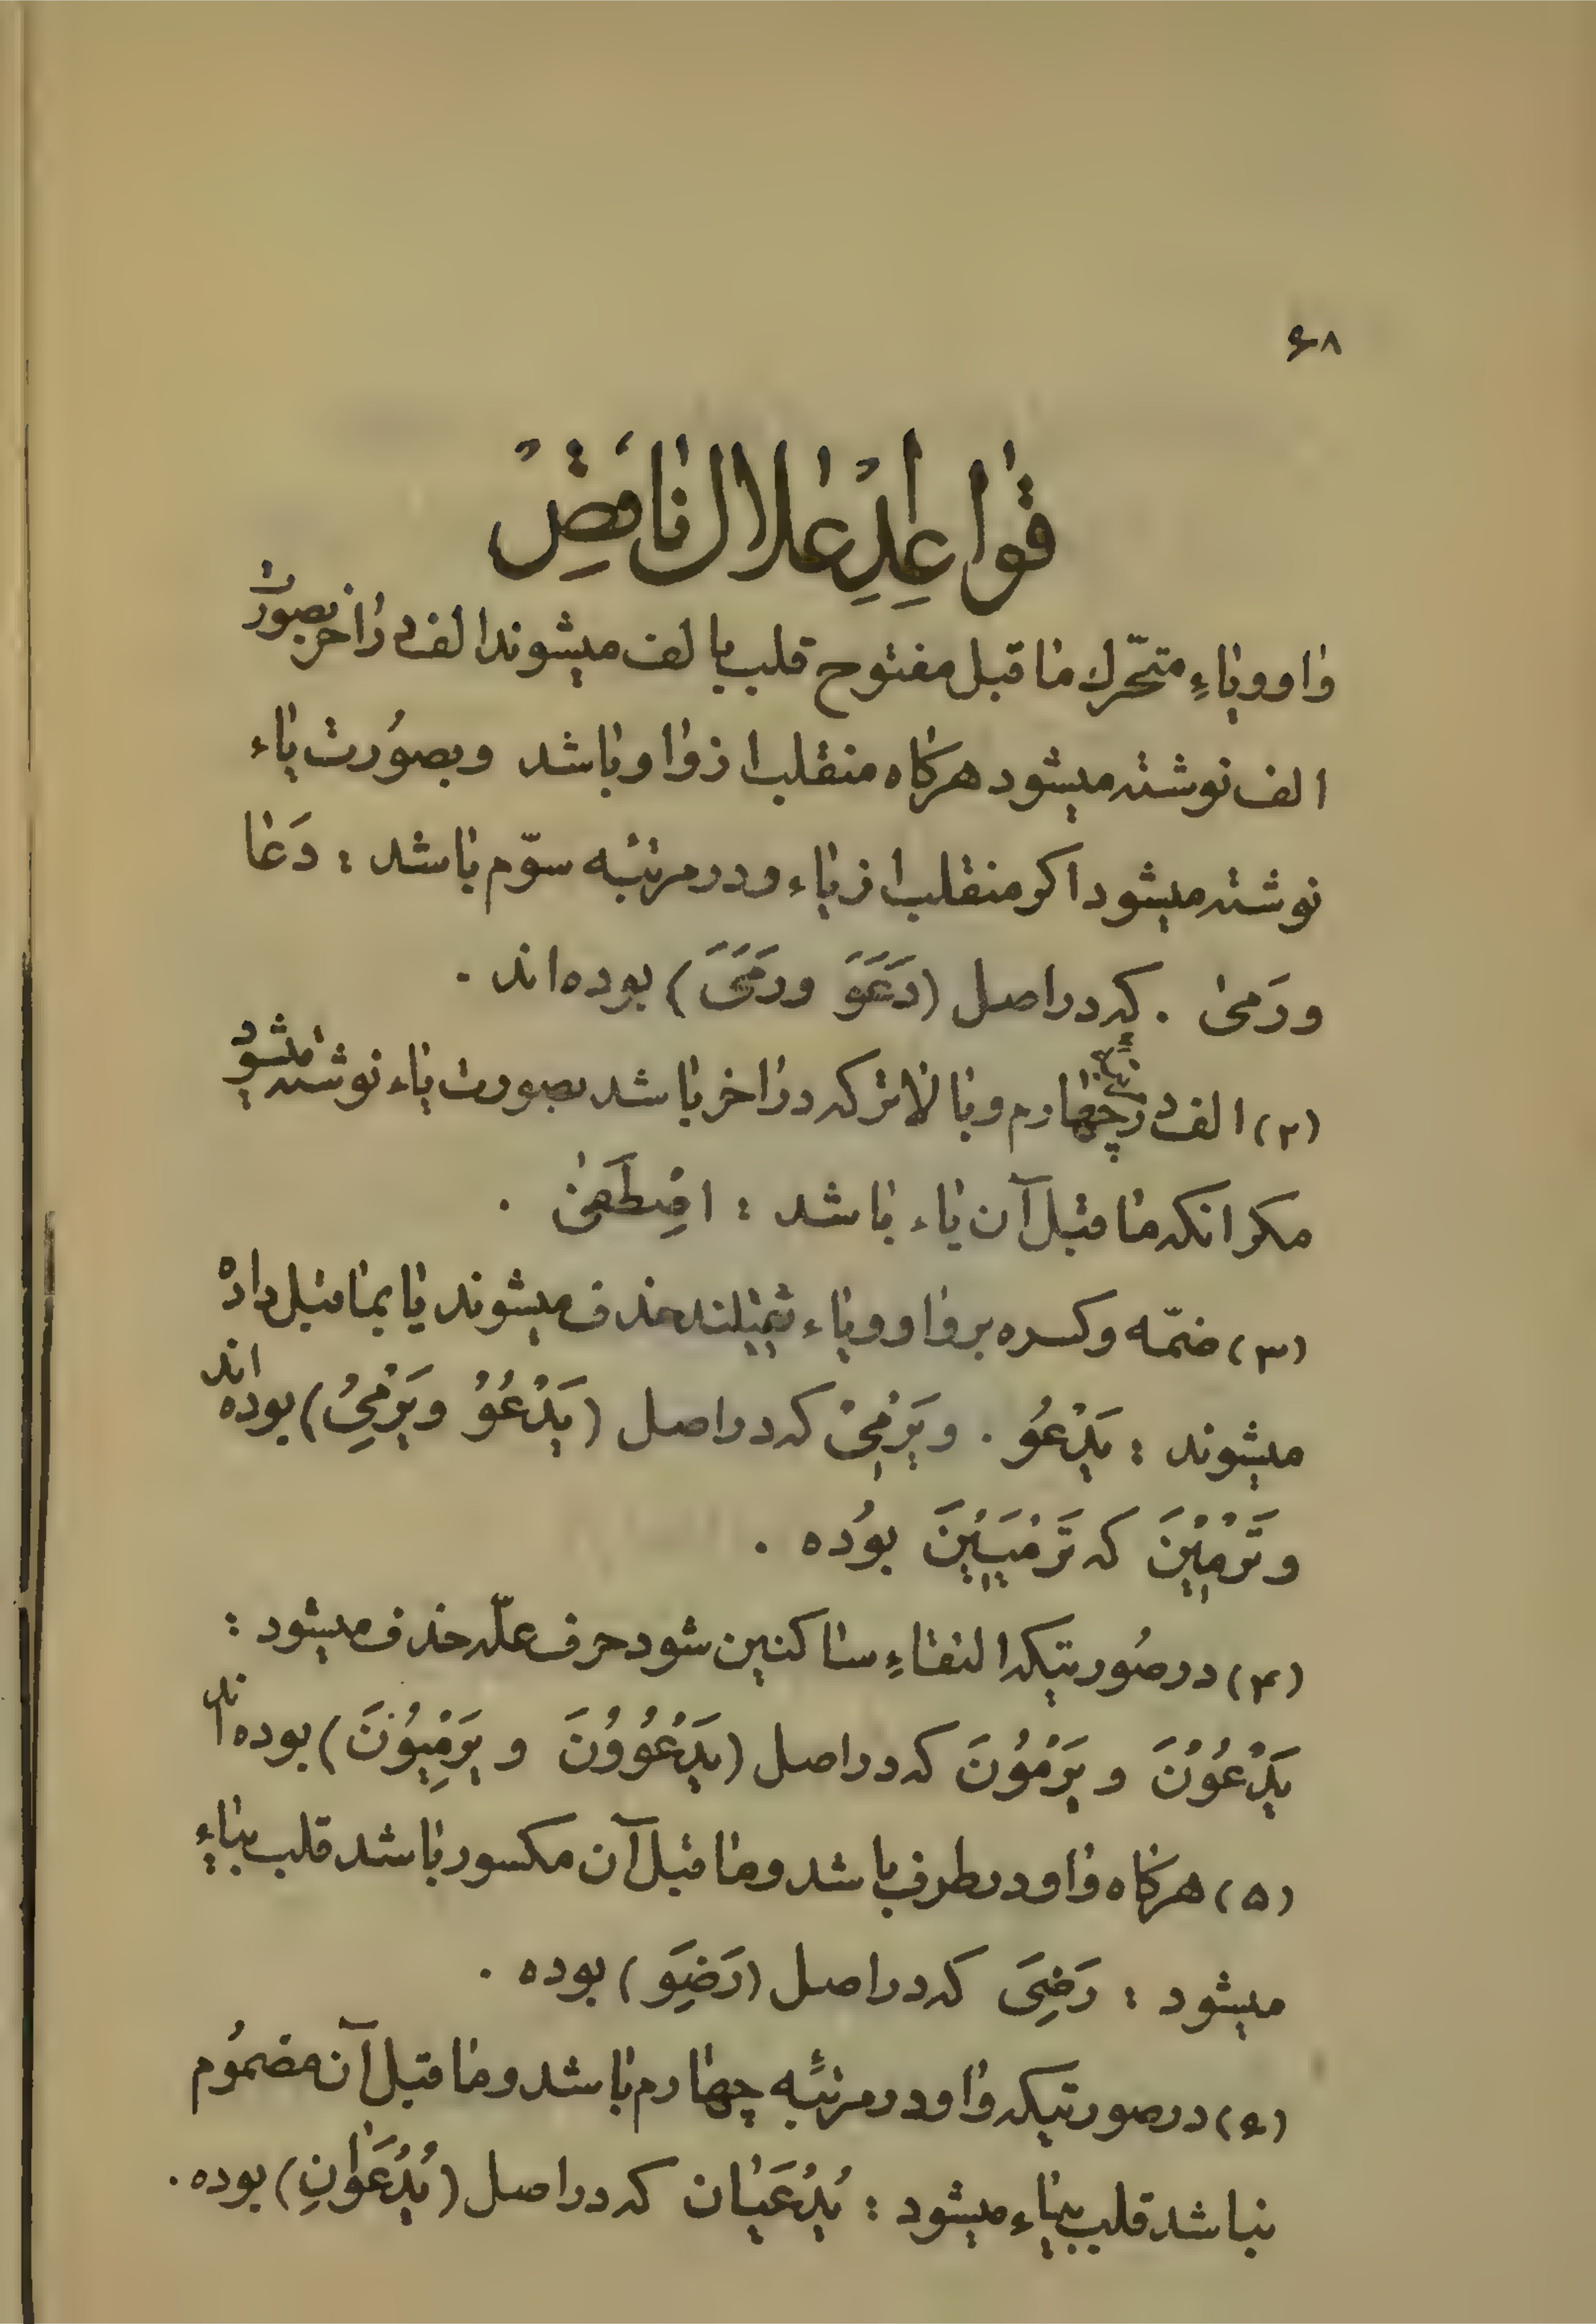 ۶۸
قواعِدِ اعلال ناقِصْ
واو و یاءِ متحّرك ماقبل مفتوح قلب بالف میشوند الف در آخر بصورت
الف نوشته میشود هرکاه منقلب از واو باشد و بصُورت یاء
نوشته میشود اکر منقلب از یاء و در مرتبه سوّم باشد : دَعا
و رَمیٰ . که در اصل (دَعَوَ و رَمَیَ) بوده اند .
(۲) الف در مرتبه چهارم و بالاتر که در آخر باشد بصورت یاء نوشته میشود
مکر انکه ماقبل آن یاء باشد : اصْطَفیٰ .
(۳) ضمّه و کسره بر واو و یاء ثقیلند حذف میشوند یا بماقبل دادهْ
میشوند : یَدْعُو . و یَرْمِیْ که در اصل (یَدْعُوُ و یَرْمِیُ) بوده اند
و تَرْمِیْنَ که تَرْمِیِیْنَ بوُده .
(۴) در صُورتیکه التقاءِ ساکنین شود حرف علّه حذف میشود :
یَدْعُوْنَ و یَرْمُوْنَ که در اصل (یَدْعُوُوْنَ و یَرْمِیُوْنَ) بوده اند
(۵) هرکاه واو در طرف باشد و ماقبل آن مکسور باشد قلب بیاءِ
میشود : رَضِیَ که در اصل (رَضِوَ) بوده .
(۶) در صورتیکه واو در مرتبُه چهارم باشد و ماقبل آن مضمُوم
نباشد قلب بیاء میشود : یُدْعَیان که در اصل (یُدْعَوانِ) بوده .